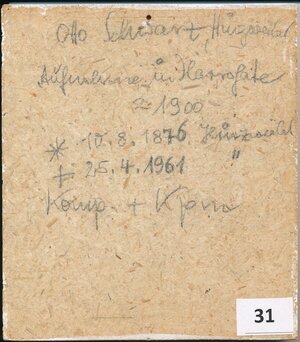 Otto Schwarz, Hinzweiler
Aufnahme in Harrogate
≈ 1900
* 10.8.1876 Hinzweiler
† 25.4.1961 "
Komp. +
31